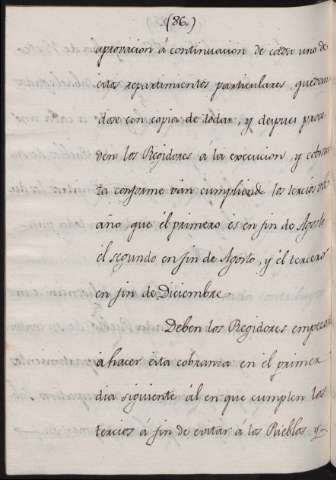 (86.)
aprovacion á continuacion de cada uno de
estos repartimientos particulares, quedan
dose con copia de todas, y despues proce
den los Regidores a la execucion, y cobran
za conforme ván cumpliendo los tercios del
año que él primero és en fin de Agosto
él segundo en fin de Agosto, y él tercero
en fin de Diciembre.
Deben los Regidores empezar
á hacer esta cobranza en él primer
dia siguiente ál en que cumplen los
tercios á fin de evitar a los Pueblos, y